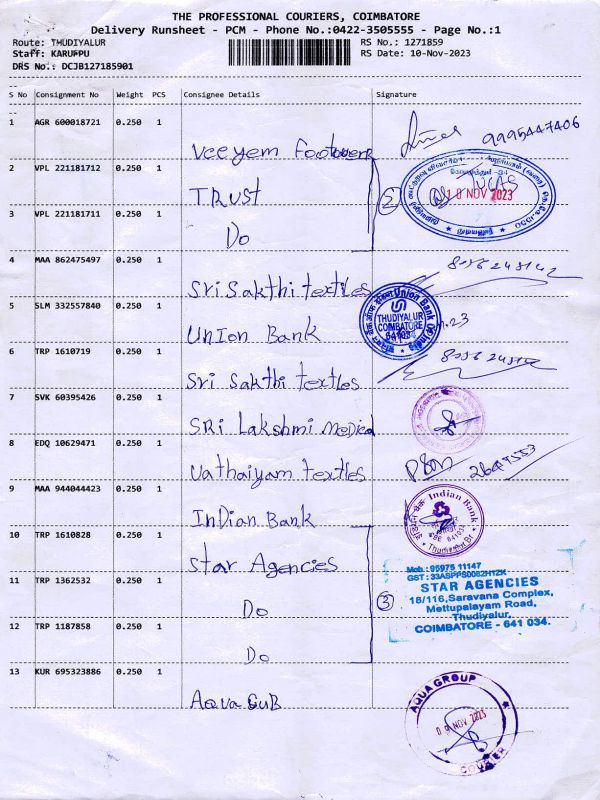 THE PROFESSIONAL COURIERS, COIMBATORE
Delivery Runsheet - PCM - Phone No.:0422-3505555 - Page No.:1
Route: THUDIYALUR
Staff: KARUPPU
DRS No.: DCJB127185901
RS No.: 1271859
RS Date: 10-Nov-2023
S No Consignment No Weight PCS Consignee Details Signature
1 AGR 600018721 0.250 1 Veeyem Footwear 9995447406
2 VPL 221181712 0.250 1 TRUST
3 VPL 221181711 0.250 1 Do
2
10 NOV 2023
4 MAA 862475497 0.250 1 Sri Sakthi textiles
5 SLM 332557840 0.250 1 Union Bank
Union Bank of India
THUDIYALUR
COIMBATORE
6 TRP 1610719 0.250 1 Sri Sakthi textles
7 SVK 60395426 0.250 1 SRi Lakshmi Medical
8 EDQ 10629471 0.250 1 Vathaiyam textles
9 MAA 944044423 0.250 1 Indian Bank
Indian Bank
Thudiyalur Br
10 TRP 1610828 0.250 1 Star Agencies
11 TRP 1362532 0.250 1 Do
12 TRP 1187858 0.250 1 Do
3
Mob : 95975 11147
GST : 33ASPPS0082H1ZK
STAR AGENCIES
18/116, Saravana Complex,
Mettupalayam Road,
Thudiyalur,
COIMBATORE - 641 034.
13 KUR 695323886 0.250 1 Aqua SUB
AQUAGROUP
09 NOV 2023
COURIER